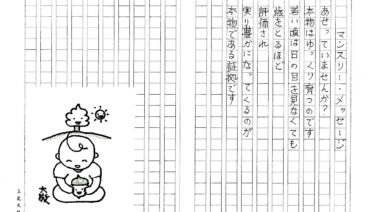 マンスリー・メッセージ
あせっていませんか？
本物はゆっくり育つのです
若い頃は日の目を見なくても
歳をとるほど
評価され
実り豊かになってくるのが
本物である証拠です